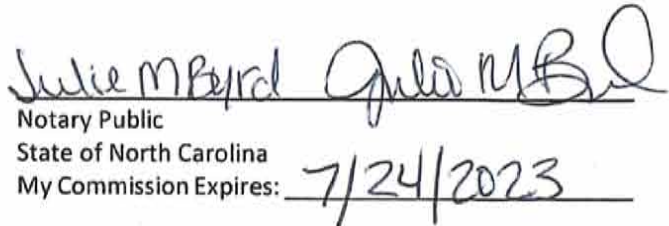 Julie M Byrd Julie M Byrd
Notary Public
State of North Carolina
My Commission Expires: 7/24/2023